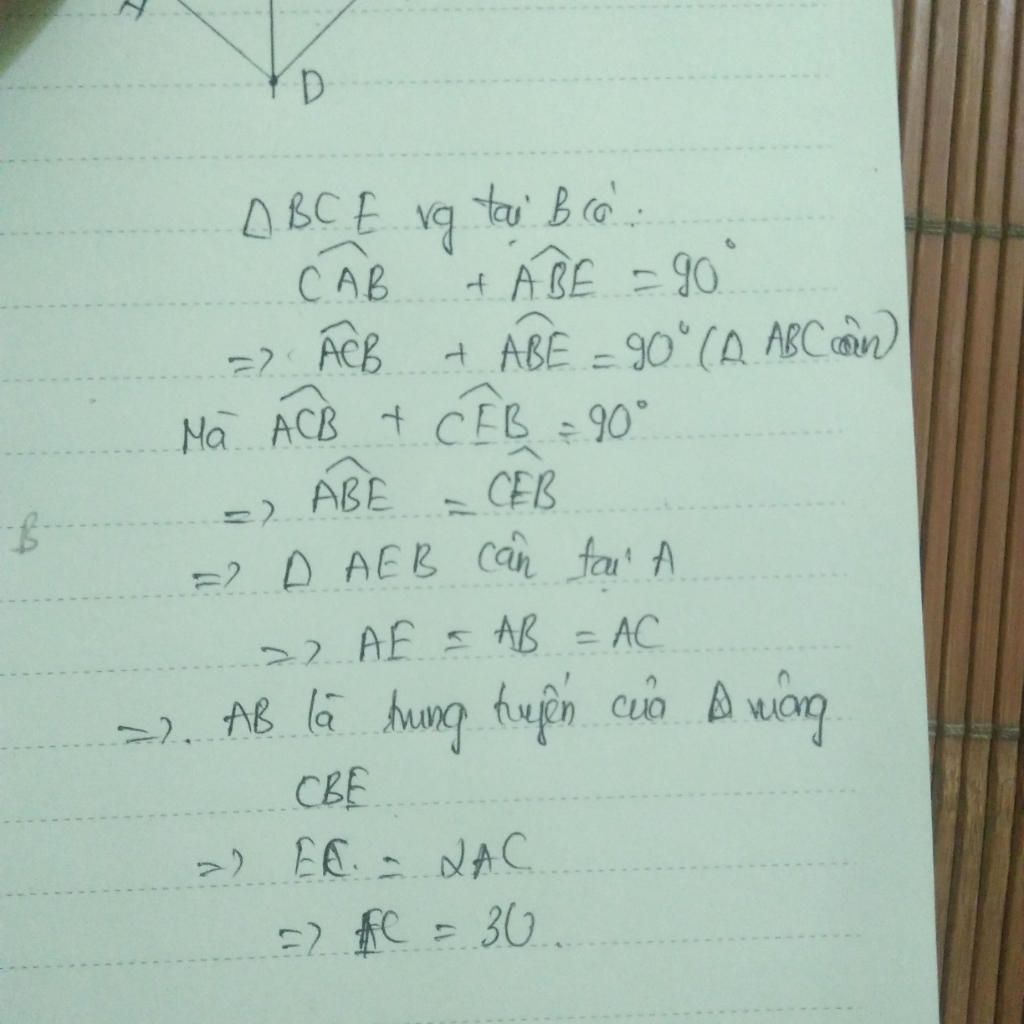 A
D
Δ BCE vg tại B có:
CAB + ABE = 90°
=> ACB + ABE = 90° (Δ ABC cân)
Mà ACB + CEB = 90°
=> ABE = CEB
B
=> Δ AEB cân tại A
=> AE = AB = AC
=>. AB là trung tuyến của Δ vuông
CBE
=> EC. = 2AC
=> EC = 30.